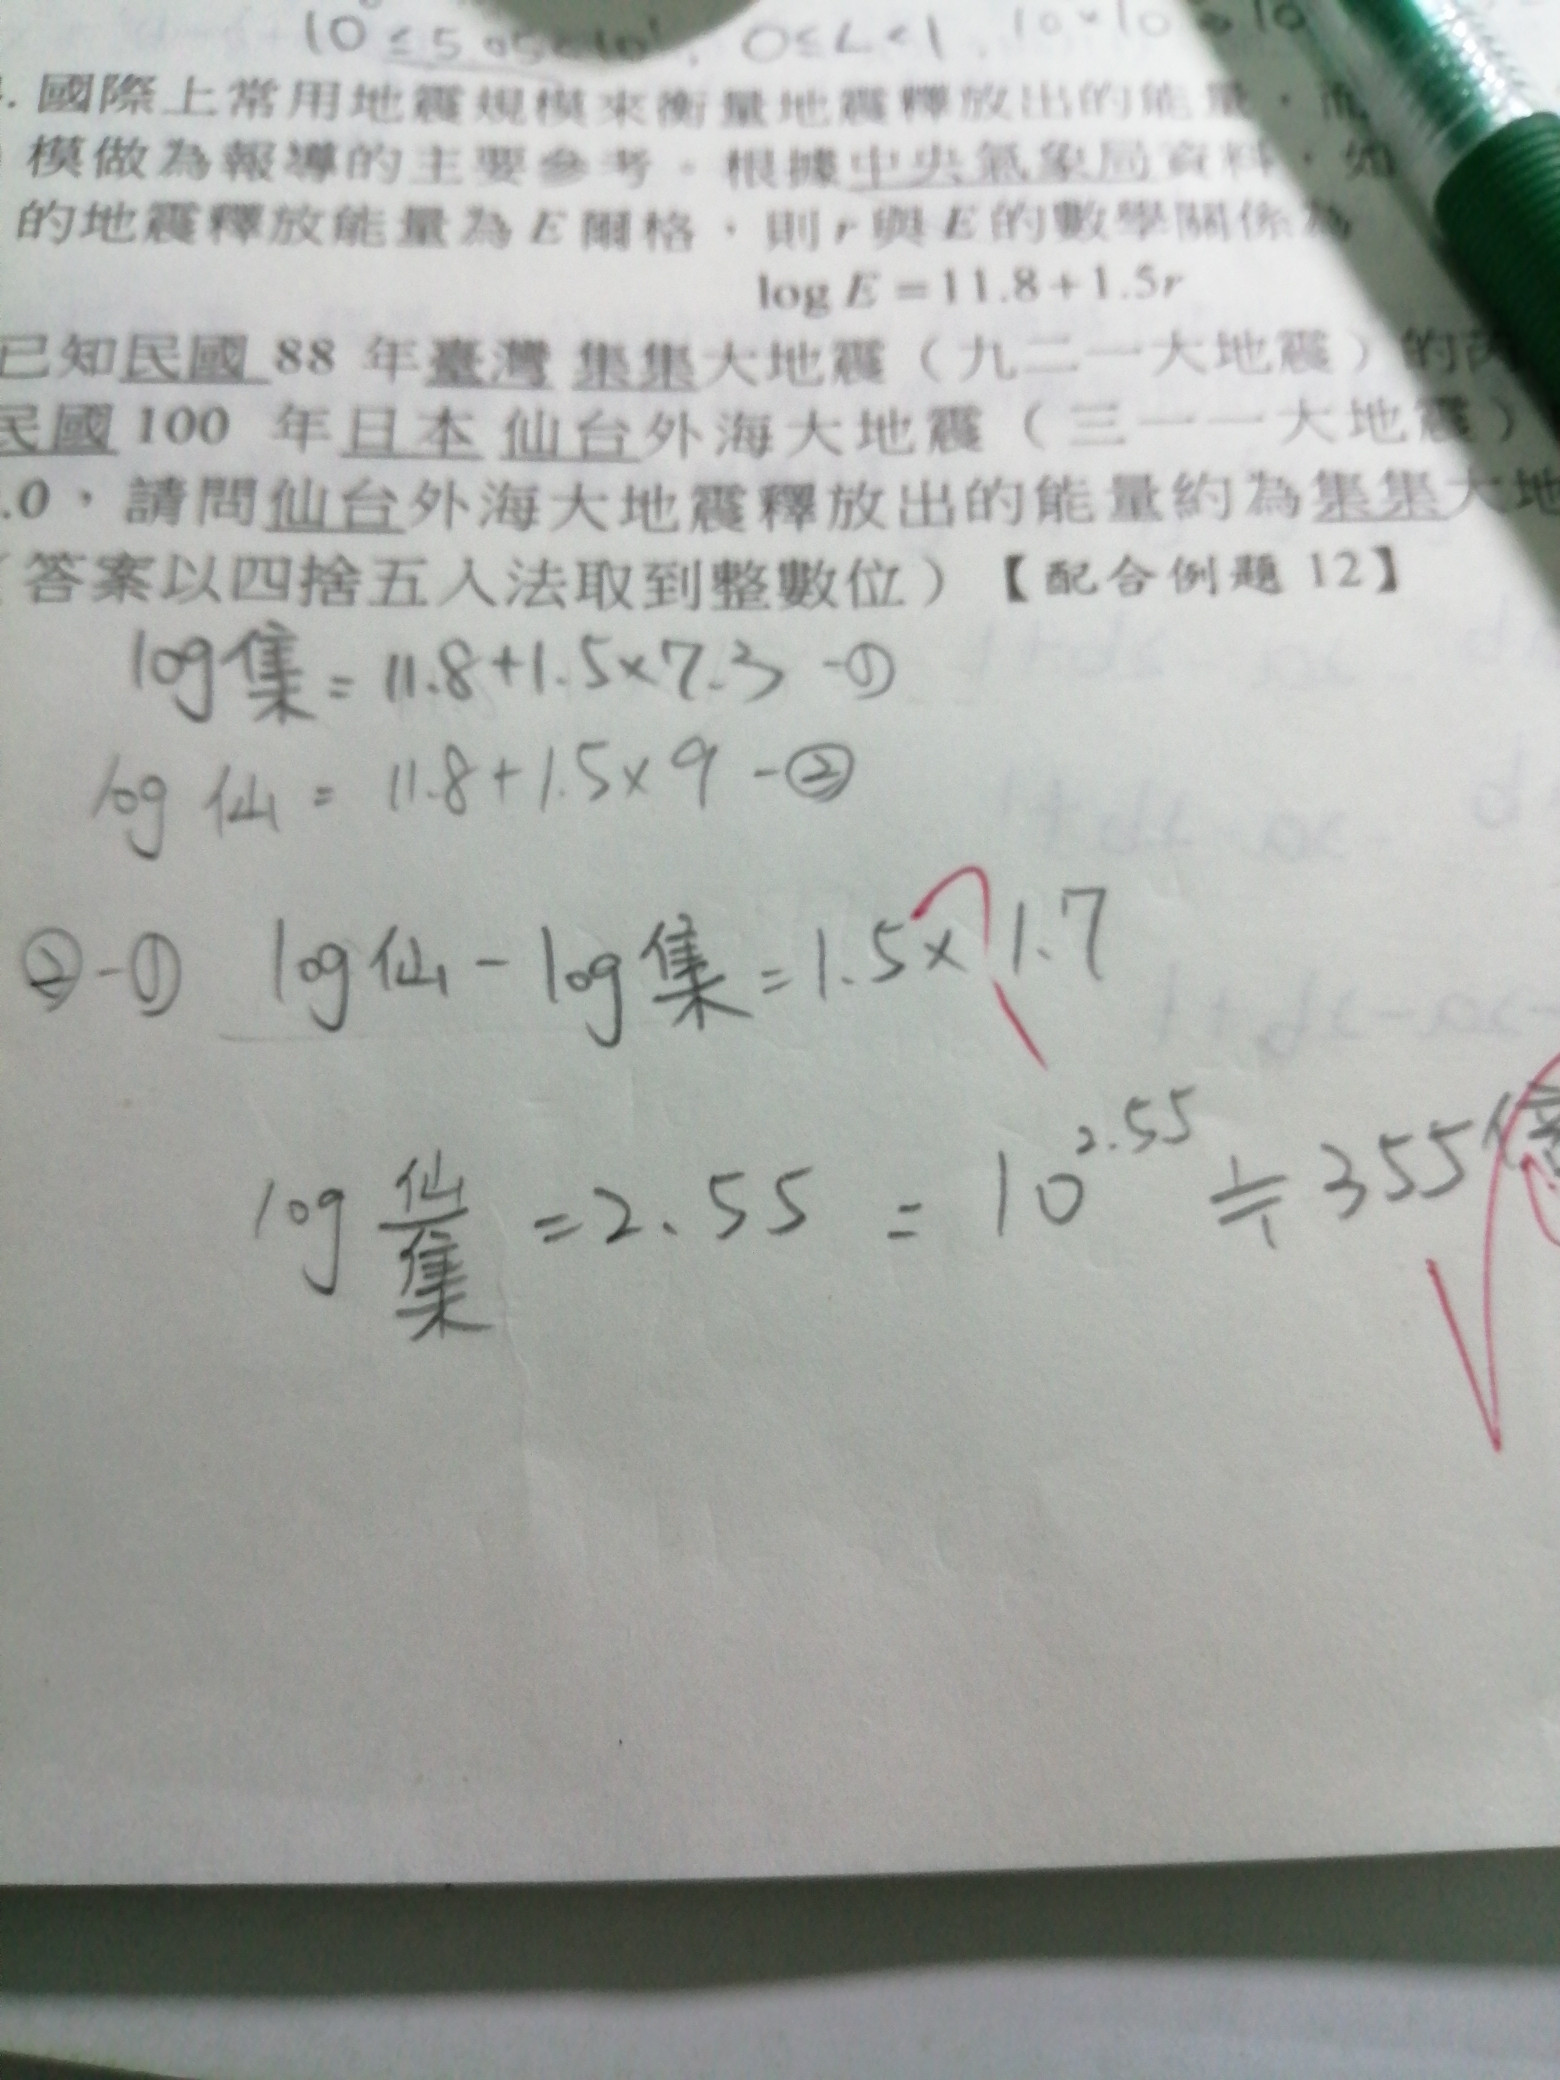 10 ≤ 5.05 < 10¹, 0 ≤ L < 1.
國際上常用地震規模來衡量地震釋放出的能量，而
模做為報導的主要參考。根據中央氣象局資料，如
的地震釋放能量為E爾格，則r與E的數學關係為
log E = 11.8 + 1.5r
已知民國 88 年臺灣 集集大地震（九二一大地震）的芮
民國 100 年日本 仙台外海大地震（三一一大地震）
.0，請問仙台外海大地震釋放出的能量約為集集大地
（答案以四捨五入法取到整數位）【配合例題 12】
log集 = 11.8+1.5×7.3 -①
log 仙 = 11.8+1.5×9 -②
②-① log仙 - log集 = 1.5×1.7
log 仙/集 = 2.55 = 10^2.55 ≒ 355倍